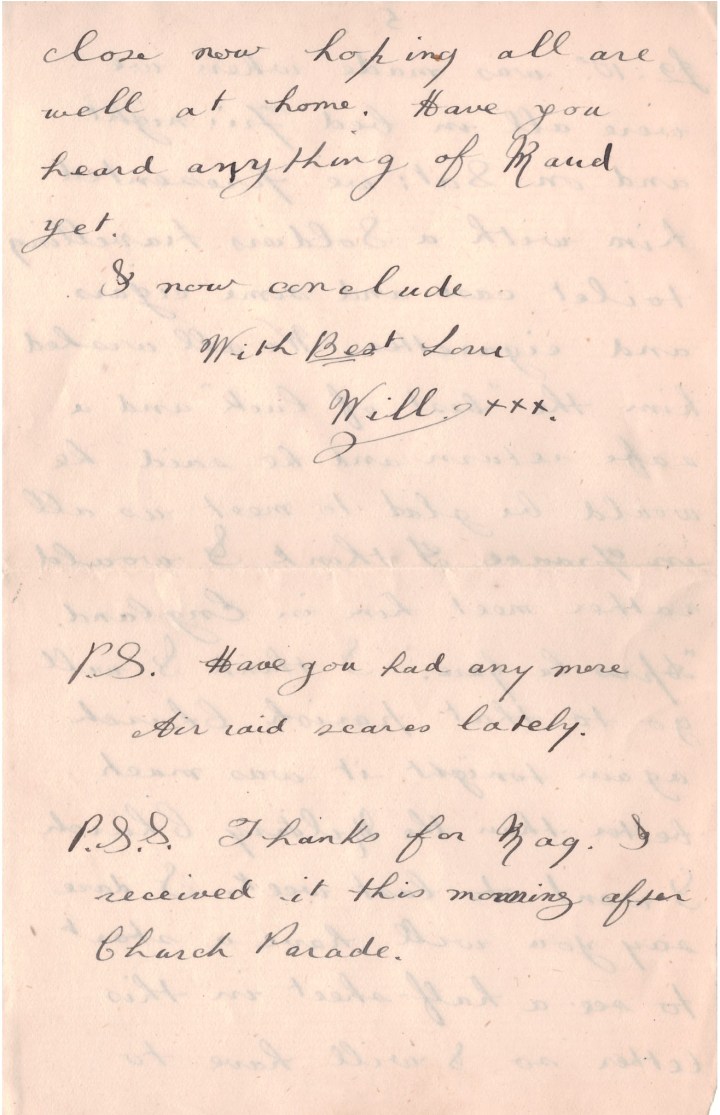 close now hoping all are
well at home. Have you
heard anything of Maud
yet.
I now conclude
With Best Love
Will. xxx.
P.S. Have you had any more
Air raid scares lately.
P.S.S. Thanks for Mag. I
received it this morning after
Church Parade.